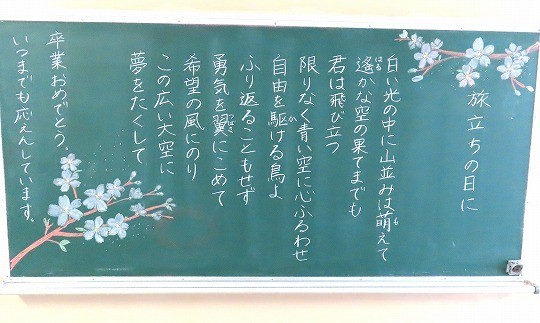 旅立ちの日に
白い光の中に山並みは萌えて
遥かな空の果てまでも
君は飛び立つ
限りなく青い空に心ふるわせ
自由を駆ける鳥よ
ふり返ることもせず
勇気を翼にこめて
希望の風にのり
この広い大空に
夢をたくして
卒業おめでとう。
いつまでも応えんしています。